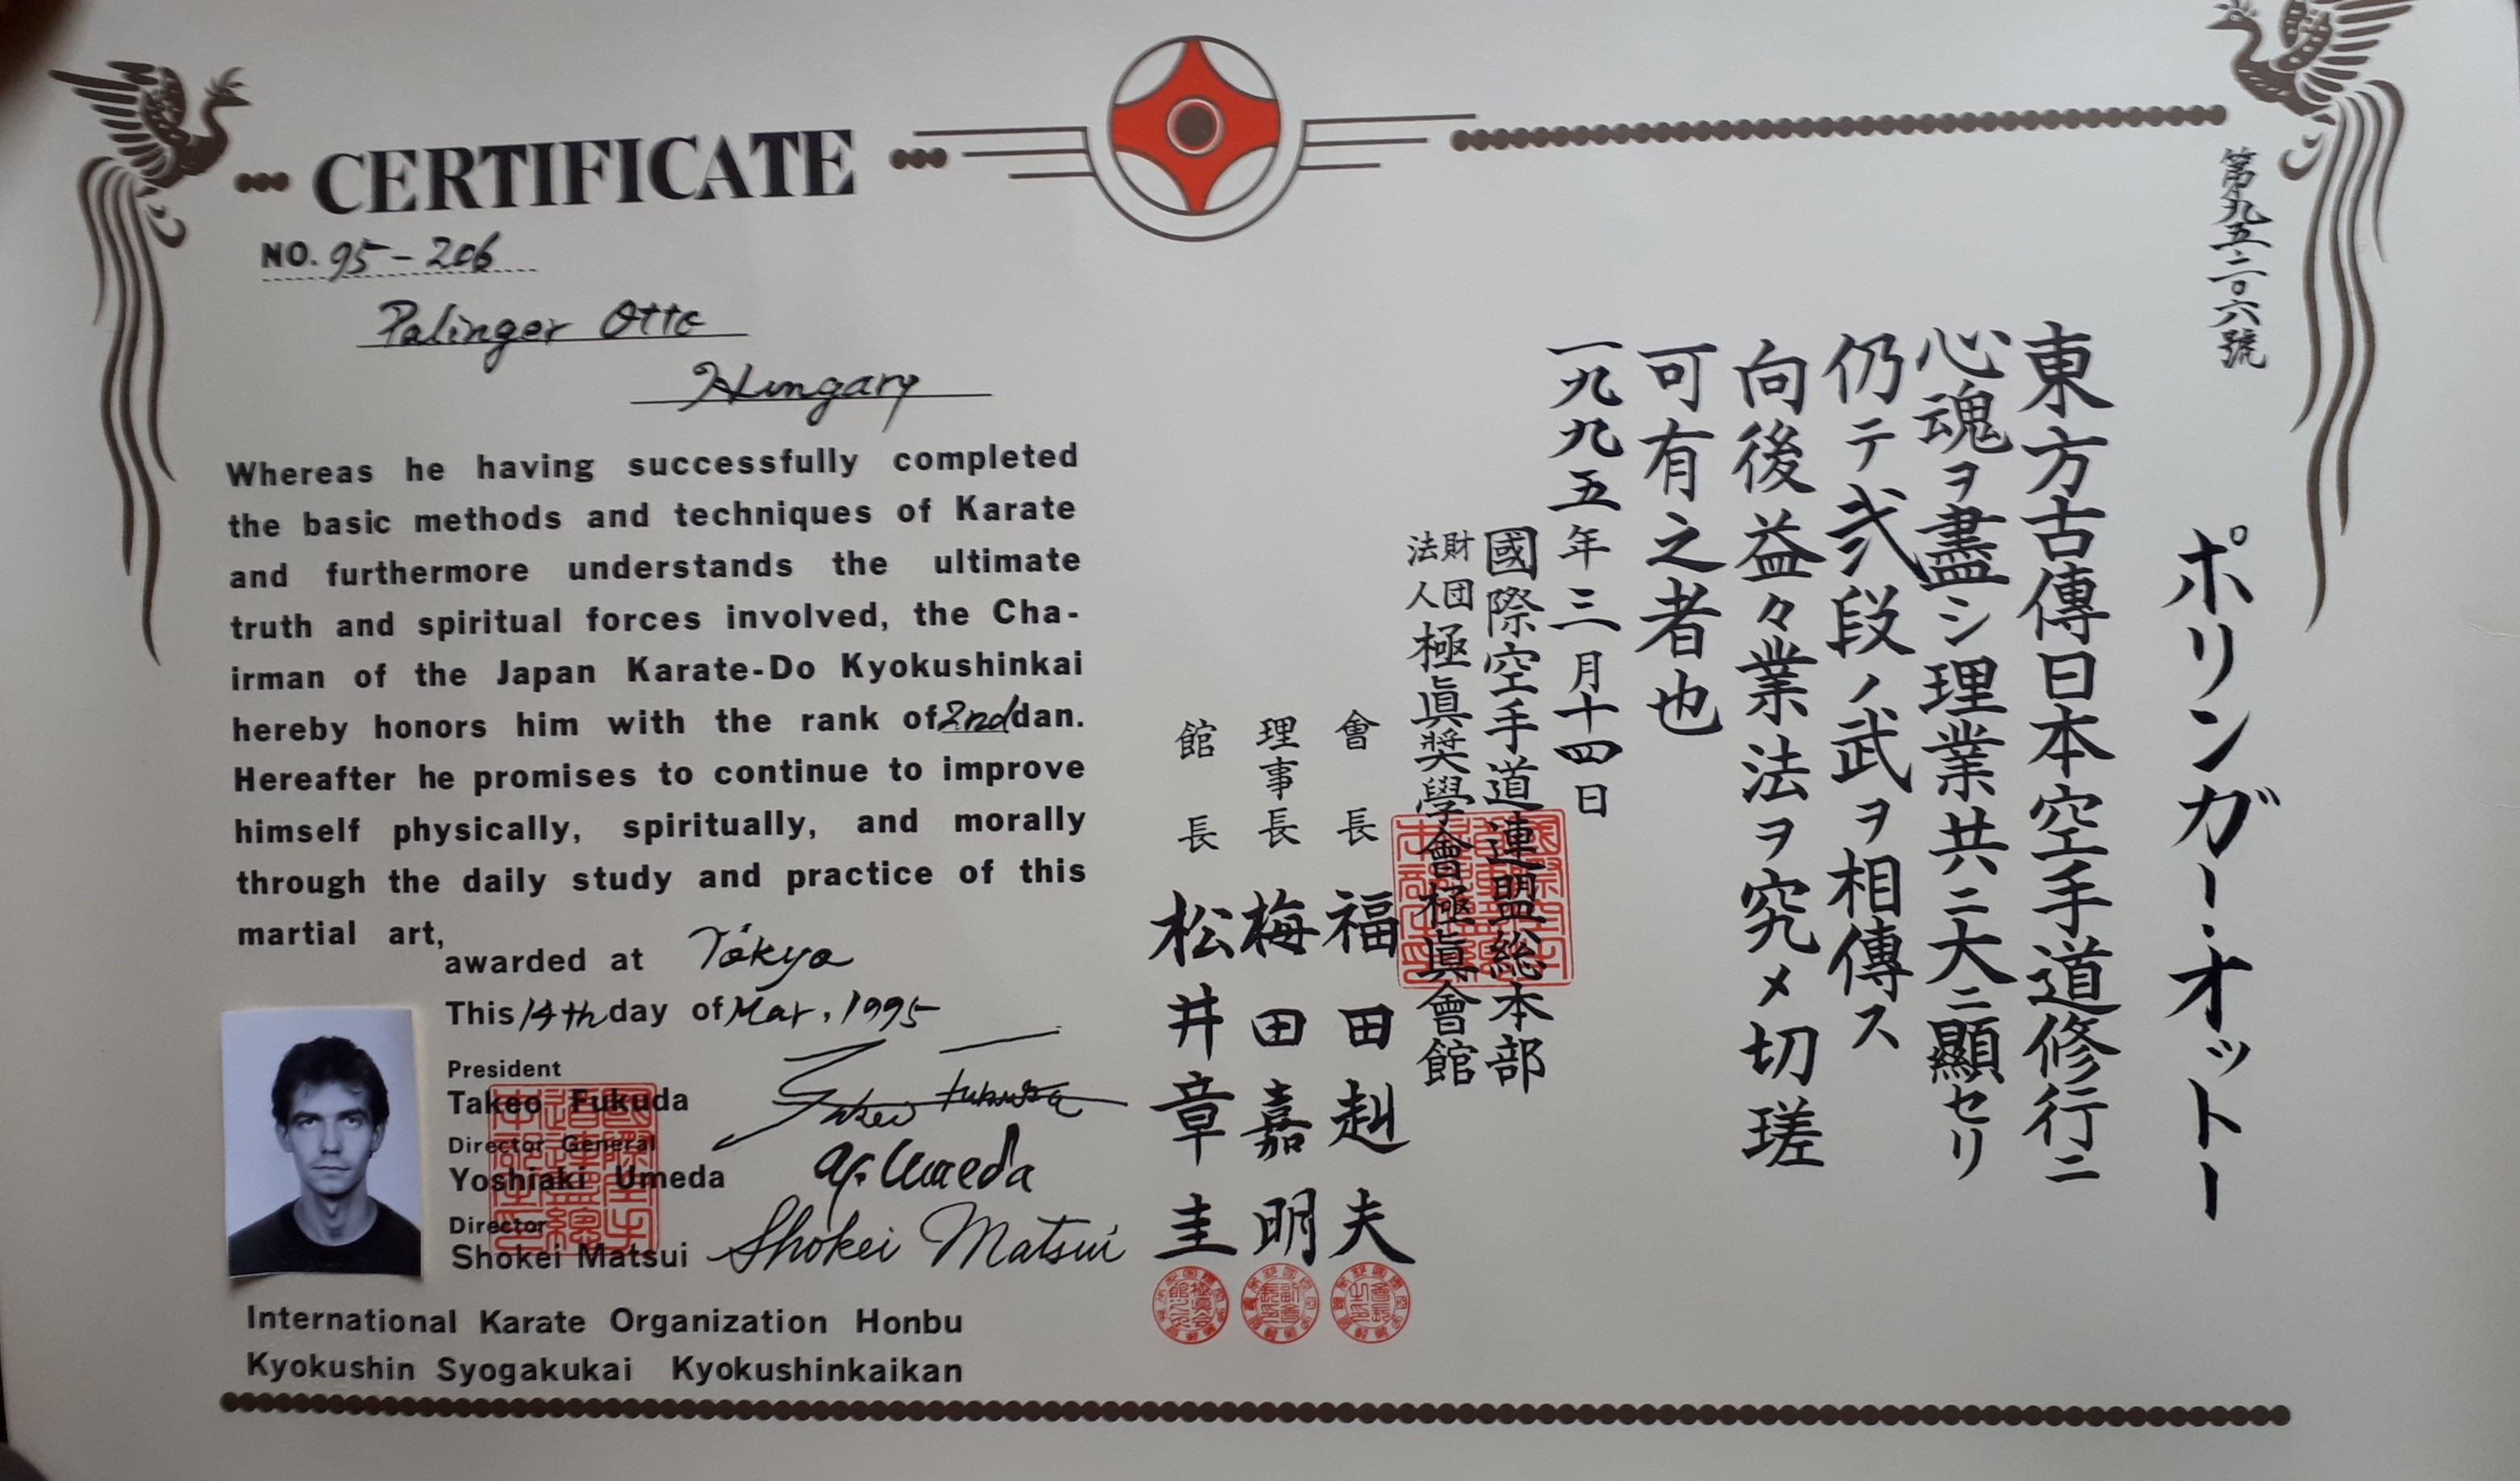 CERTIFICATE
NO. 95-206
Palinger Otto
Hungary
Whereas he having successfully completed
the basic methods and techniques of Karate
and furthermore understands the ultimate
truth and spiritual forces involved, the Cha-
irman of the Japan Karate-Do Kyokushinkai
hereby honors him with the rank of 2nd dan.
Hereafter he promises to continue to improve
himself physically, spiritually, and morally
through the daily study and practice of this
martial art,
awarded at Tokyo
This 14th day of Mar, 1995
President
Takeo Fukuda
Takeo Fukuda
Director General
Yoshiaki Umeda
Y. Umeda
Director
Shokei Matsui
Shokei Matsui
International Karate Organization Honbu
Kyokushin Syogakukai Kyokushinkaikan
第九五二〇六號
ポリンガー・オットー
東方古傳日本空手道修行ニ
心魂ヲ盡シ理業共ニ大ニ顯セリ
仍テ弐段ノ武ヲ相傳ス
向後益々業法ヲ究メ切瑳
可有之者也
一九九五年三月十四日
國際空手道連盟総本部
財団法人極眞奨學會極眞會館
會長 福田赳夫
理事長 梅田嘉明
館長 松井章圭